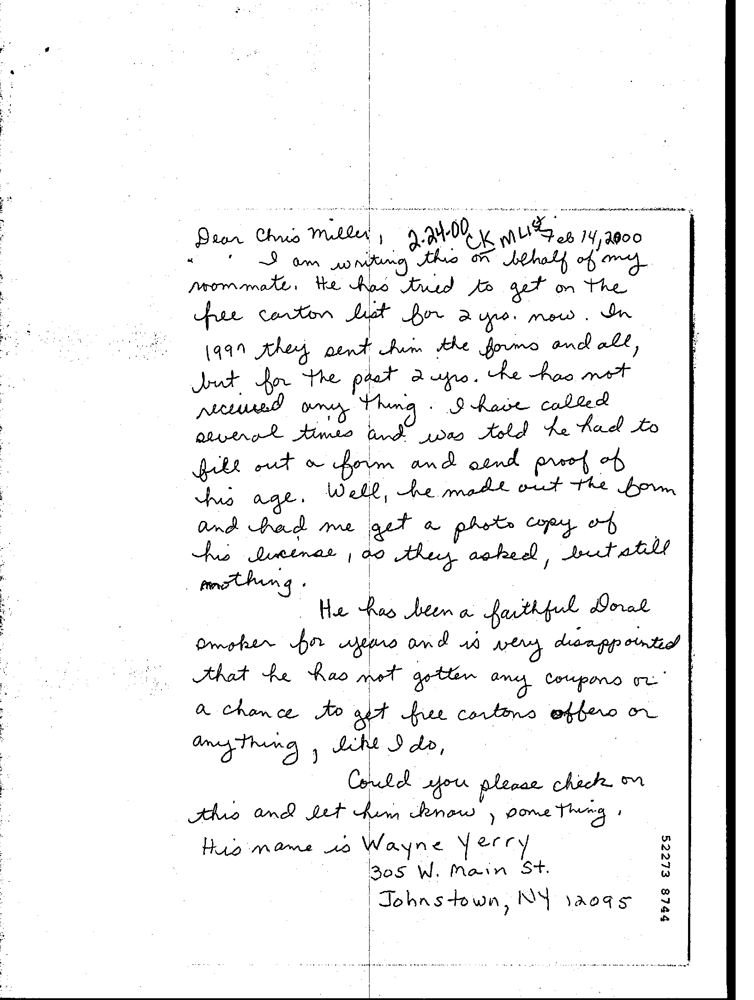 Dear Chris Miller, 2-24-00 CK MList Feb 14, 2000
I am writing this on behalf of my
roommate. He has tried to get on the
free carton list for 2 yrs. now. In
1997 they sent him the forms and all,
but for the past 2 yrs. he has not
received any thing. I have called
several times and was told he had to
fill out a form and send proof of
his age. Well, he made out the form
and had me get a photo copy of
his license, as they asked, but still
nothing.
He has been a faithful Doral
smoker for years and is very disappointed
that he has not gotten any coupons or
a chance to get free cartons offers or
anything, like I do,
Could you please check on
this and let him know, something.
His name is Wayne Yerry
305 W. Main St.
Johnstown, NY 12095
52273 8744